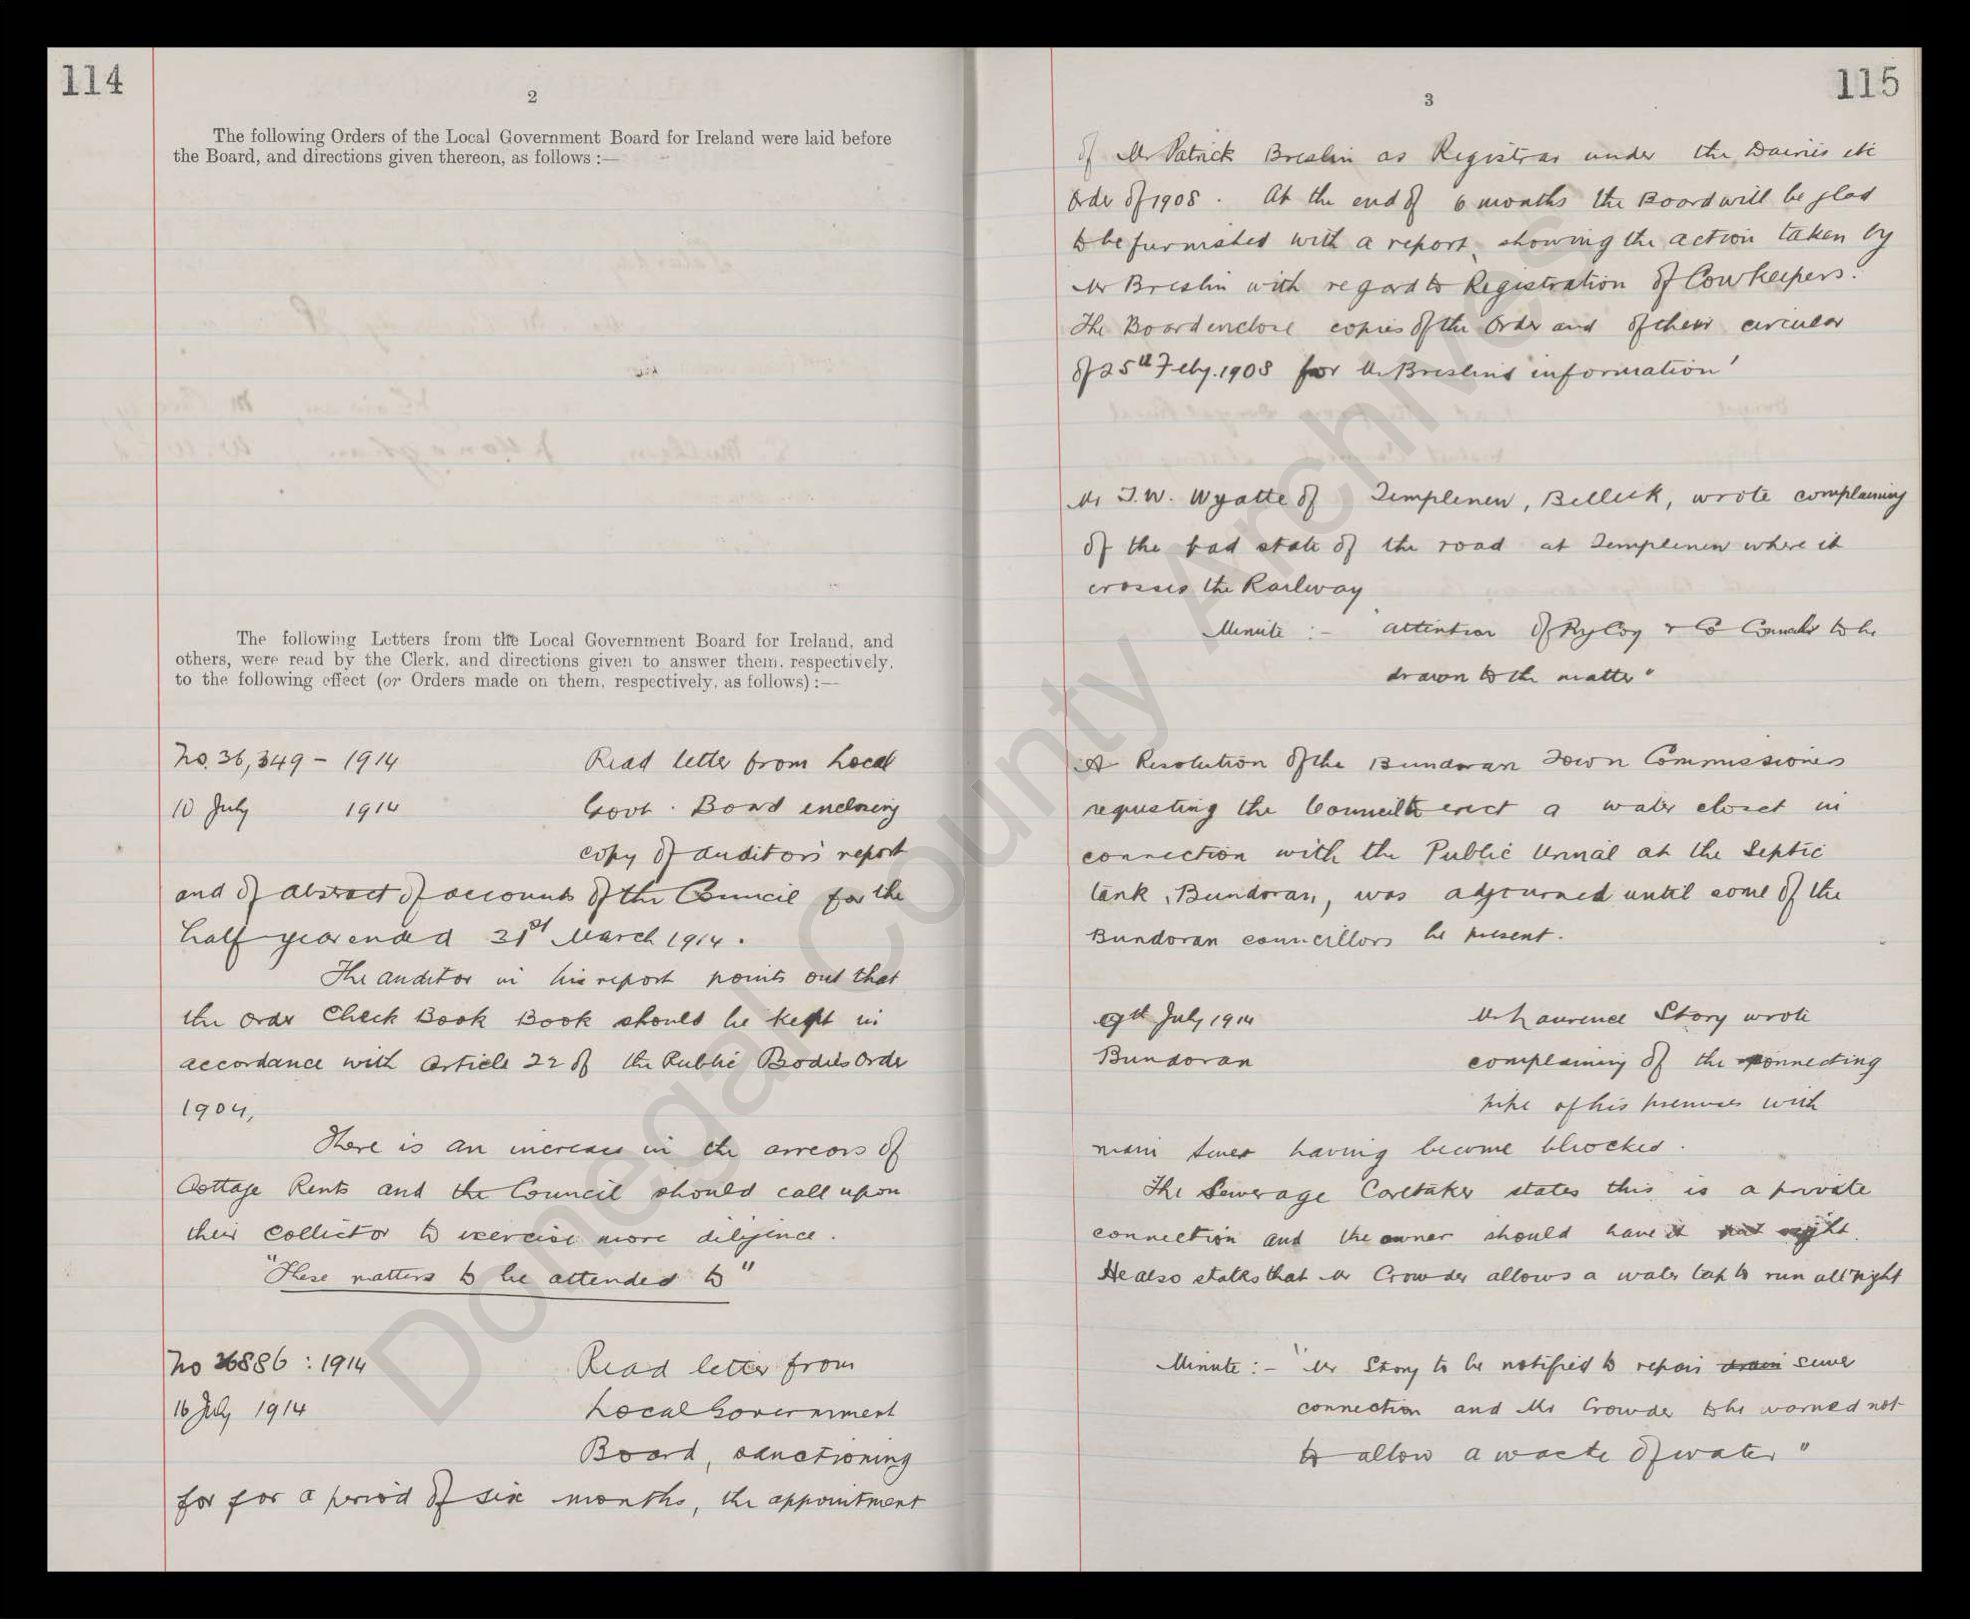 114
2
The following Orders of the Local Government Board for Ireland were laid before
the Board, and directions given thereon, as follows :—
The following Letters from the Local Government Board for Ireland, and
others, were read by the Clerk, and directions given to answer them, respectively,
to the following effect (or Orders made on them, respectively, as follows) :—
No. 36,349 - 1914 Read letter from Local
10 July 1914 Govt. Board enclosing
copy of auditors report
and of abstract of accounts of the Council for the
half year ended 31st March 1914.
The auditor in his report points out that
the Order Check Book Book should be kept in
accordance with Article 22 of the Public Bodies Order
1904,
There is an increase in the arrears of
Cottage Rents and the Council should call upon
their Collector to exercise more diligence.
"These matters to be attended to"
No 36886 : 1914 Read letter from
16 July 1914 Local Government
Board, sanctioning
for for a period of six months, the appointment
115
3
of Mr Patrick Breslin as Registrar under the Dairies etc
Order of 1908. At the end of 6 months the Board will be glad
to be furnished with a report, showing the action taken by
Mr Breslin with regard to Registration of Cowkeepers.
The Board enclose copies of the Order and of their circular
of 25th Feby. 1908 for Mr Breslin's information"
Mr T.W. Wyatte of Templenew, Belleek, wrote complaining
of the bad state of the road at Templenew where it
crosses the Railway
Minute :- "Attention of Ry Coy & Co Councillor to be
drawn to the matter"
A Resolution of the Bundoran Town Commissioners
requesting the Council to erect a water closet in
connection with the Public Urinal at the Septic
tank, Bundoran, was adjourned until some of the
Bundoran councillors be present.
9th July 1914 Mr Laurence Story wrote
Bundoran complaining of the connecting
pipe of his premises with
main sewer having become blocked.
The Sewerage Caretaker states this is a private
connection and the owner should have it put right.
He also states that Mr Crowder allows a water tap to run all night
Minute :- "Mr Story to be notified to repair drain sewer
connection and Mr Crowder to be warned not
to allow a waste of water"
Donegal County Archives